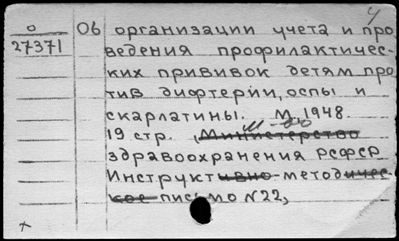 4
О 27371
Об организации учета и про
ведения профилактичес-
ких прививок детям про
тив дифтерии, оспы и
скарлатины. М, 1948.
19 стр. Министерство
здравоохранения РСФСР
Инструктивно-методичес-
кое письмо N22,